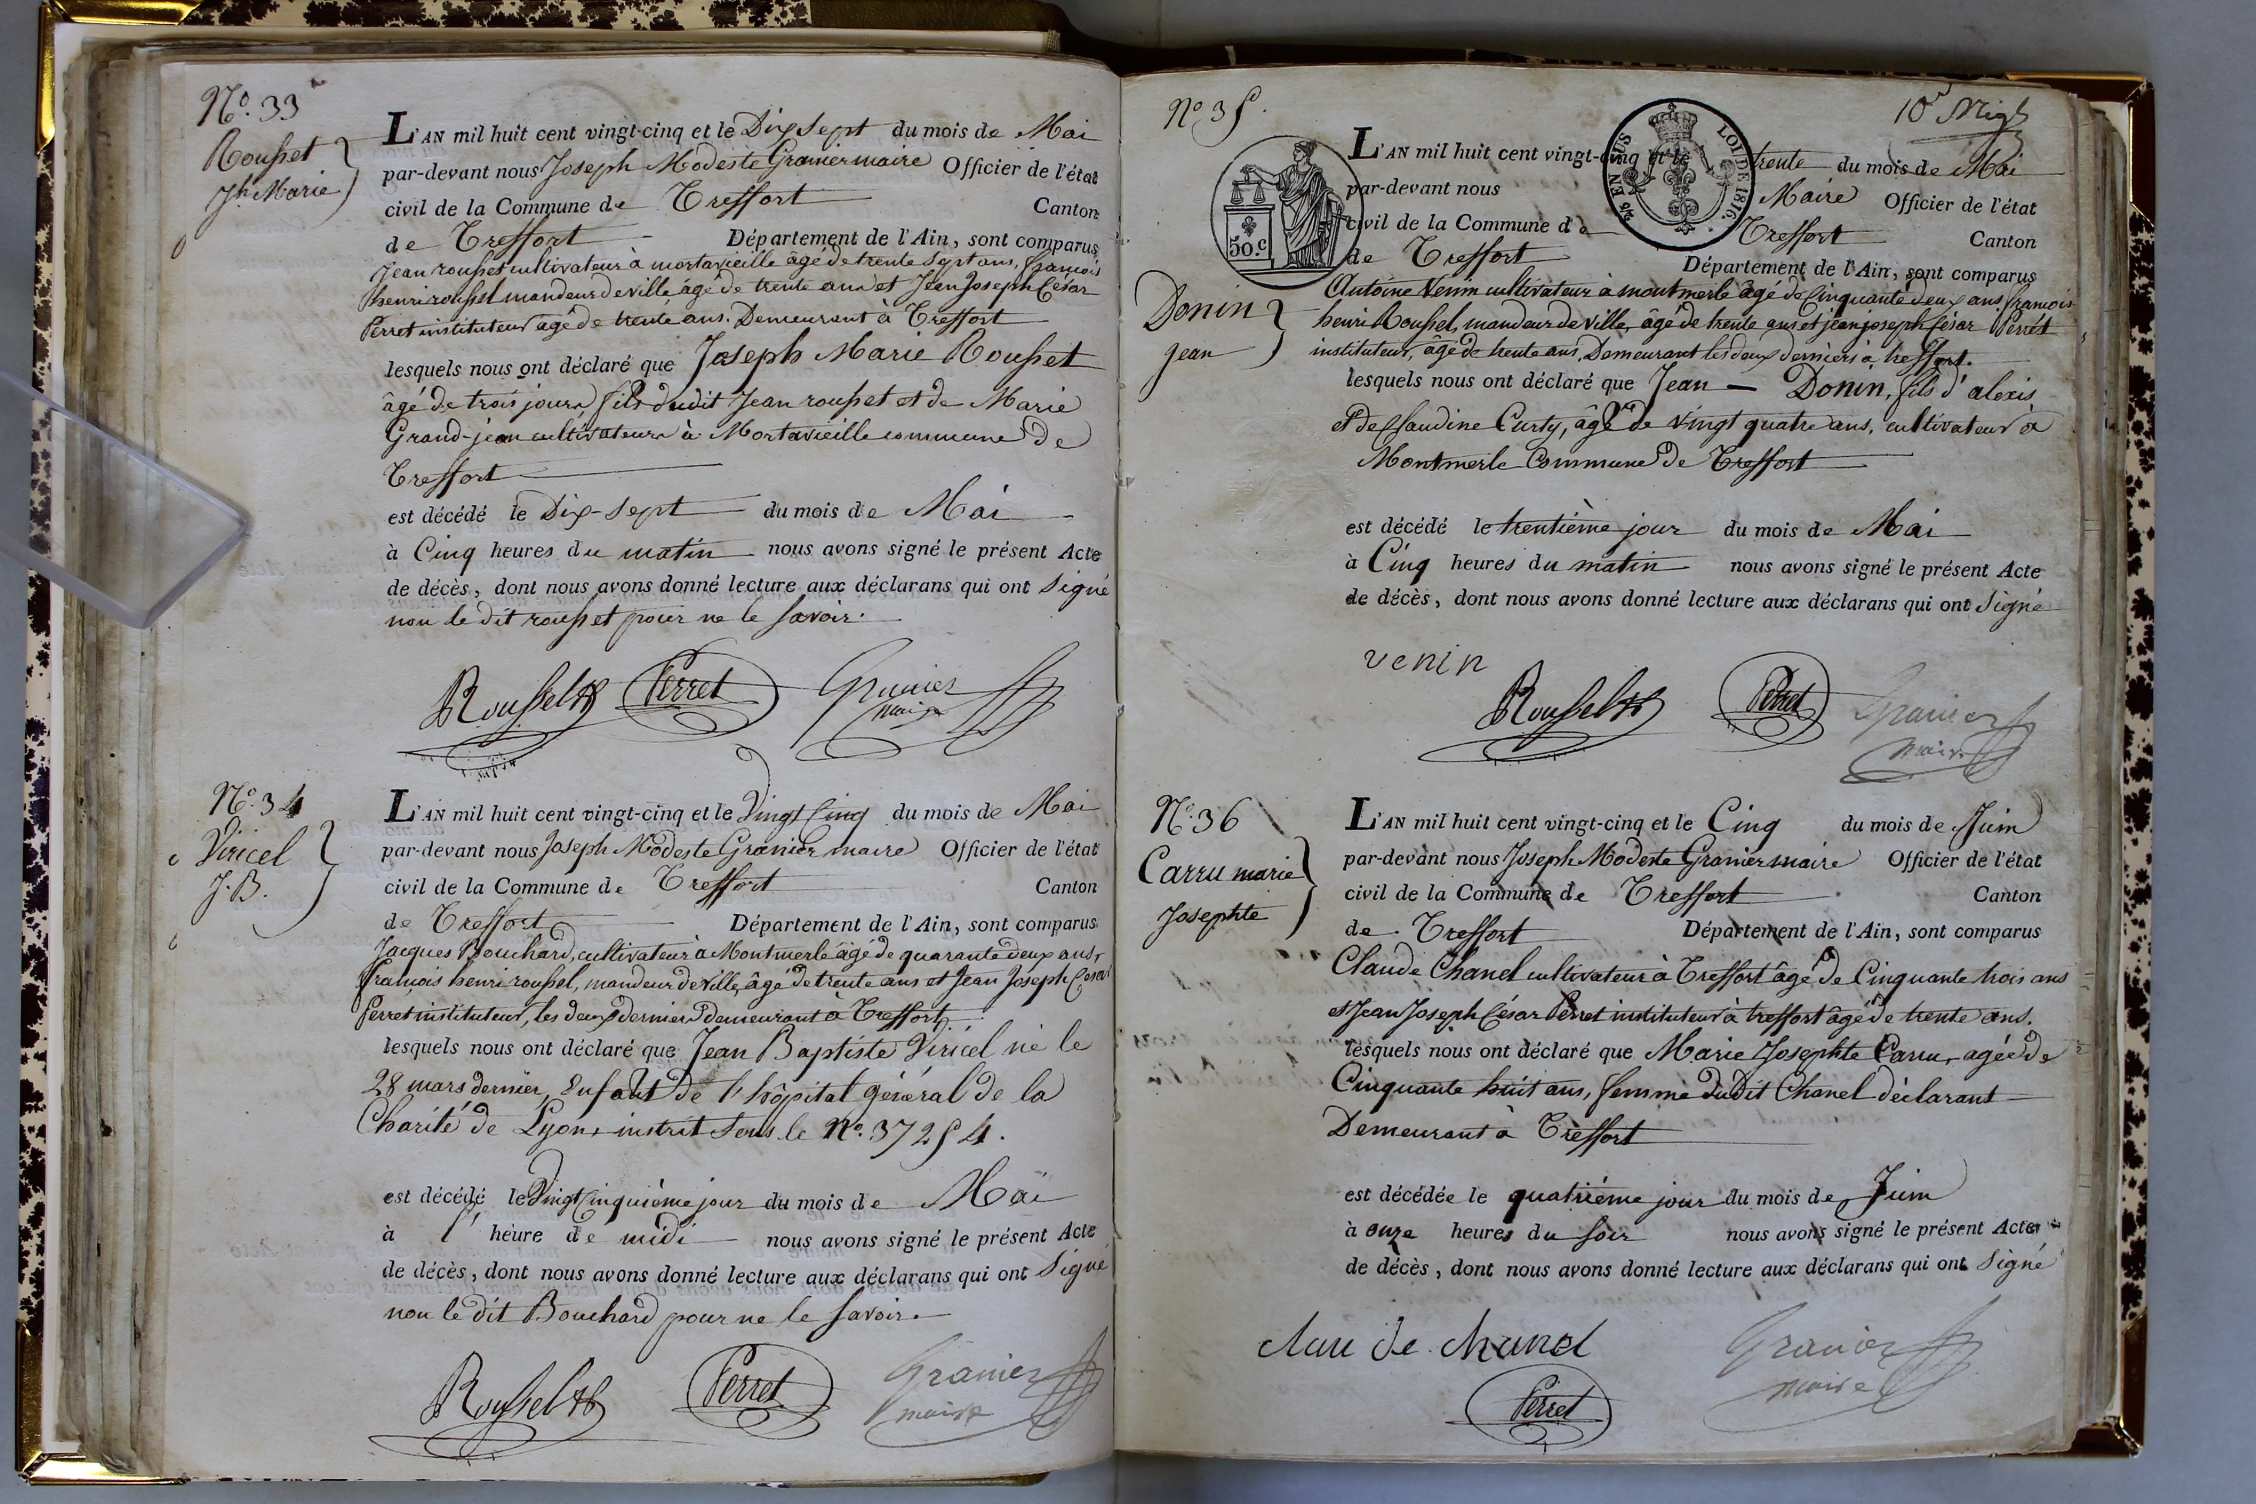 N.° 33
Rousset
Jh Marie
L'AN mil huit cent vingt-cinq et le Dix sept du mois de Mai
par-devant nous Joseph Modeste Granier maire Officier de l'état
civil de la Commune de Treffort Canton
de Treffort Département de l'Ain, sont comparus
Jean rousset cultivateur à mortavieille âgé de trente sept ans, françois
henri roussel mandeur de ville, âgé de trente ans et Jean Joseph César
Perret instituteur âgé de trente ans. Demeurant à Treffort
lesquels nous ont déclaré que Joseph Marie Rousset
âgé de trois jours, fils dudit Jean rousset et de Marie
Grand-jean cultivateurs à Mortavieille commune de
Treffort
est décédé le Dix-sept du mois de Mai
à Cinq heures du matin nous avons signé le présent Acte
de décès, dont nous avons donné lecture aux déclarans qui ont signé
non le dit rousset pour ne le savoir.
Roussel Perret Granier
maire
N.° 34
Viricel
J. B.
L'AN mil huit cent vingt-cinq et le Vingt Cinq du mois de Mai
par-devant nous Joseph Modeste Granier maire Officier de l'état
civil de la Commune de Treffort Canton
de Treffort Département de l'Ain, sont comparus
Jacques Bouchard, cultivateur à Montmerle âgé de quarante deux ans,
françois henri roussel, mandeur de ville, âgé de trente ans et Jean Joseph Cesar
Perret instituteur, les deux derniers demeurant à Treffort
lesquels nous ont déclaré que Jean Baptiste Viricel né le
28 mars dernier, Enfant de l'hôpital général de la
Charité de Lyon, inscrit sous le N.° 37254.
est décédé le Vingt Cinquième jour du mois de Mai
à l' heure de midi nous avons signé le présent Acte
de décès, dont nous avons donné lecture aux déclarans qui ont signé
non le dit Bouchard pour ne le savoir.
Roussel Perret Granier
maire
N.° 35.
Donin
jean
50 c.
EN SUS
LOI DE 1816.
L'AN mil huit cent vingt-cinq et le trente du mois de Mai
par-devant nous Maire Officier de l'état
civil de la Commune de Treffort Canton
de Treffort Département de l'Ain, sont comparus
Antoine Venin cultivateur à montmerle âgé de Cinquante deux ans, françois
henri Roussel, mandeur de ville, âgé de trente ans et jean joseph César Perret
instituteur, âgé de trente ans, Demeurant les deux derniers à treffort.
lesquels nous ont déclaré que Jean Donin, fils d'alexis
et de Claudine Curty, âgé de vingt quatre ans, cultivateur à
Montmerle Commune de Treffort
est décédé le trentième jour du mois de Mai
à Cinq heures du matin nous avons signé le présent Acte
de décès, dont nous avons donné lecture aux déclarans qui ont signé
venin
Roussel Perret Granier
maire
N.° 36
Carru marie
Josephte
L'AN mil huit cent vingt-cinq et le Cinq du mois de Juin
par-devant nous Joseph Modeste Granier maire Officier de l'état
civil de la Commune de Treffort Canton
de Treffort Département de l'Ain, sont comparus
Claude Chanel cultivateur à Treffort âgé de Cinquante trois ans
et Jean Joseph César Perret instituteur à treffort âgé de trente ans.
lesquels nous ont déclaré que Marie Josephte Carru, agée de
Cinquante huit ans, femme dudit Chanel déclarant
Demeurant à Treffort
est décédée le quatrième jour du mois de Juin
à onze heures du soir nous avons signé le présent Acte
de décès, dont nous avons donné lecture aux déclarans qui ont signé
clau de chanel Granier
maire
Perret